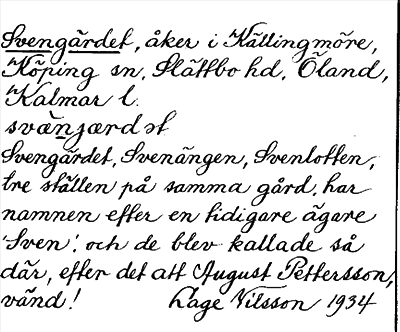 Svengärdet, åker i Källingmöre,
Köping sn, Slättbo hd, Öland,
Kalmar l.
svä̀njærdət
Svengärdet, Svenängen, Svenlotten,
tre ställen på samma gård, har
namnen efter en tidigare ägare
'Sven', och de blev kallade så
där, efter det att August Pettersson,
vänd! Lage Nilsson 1934